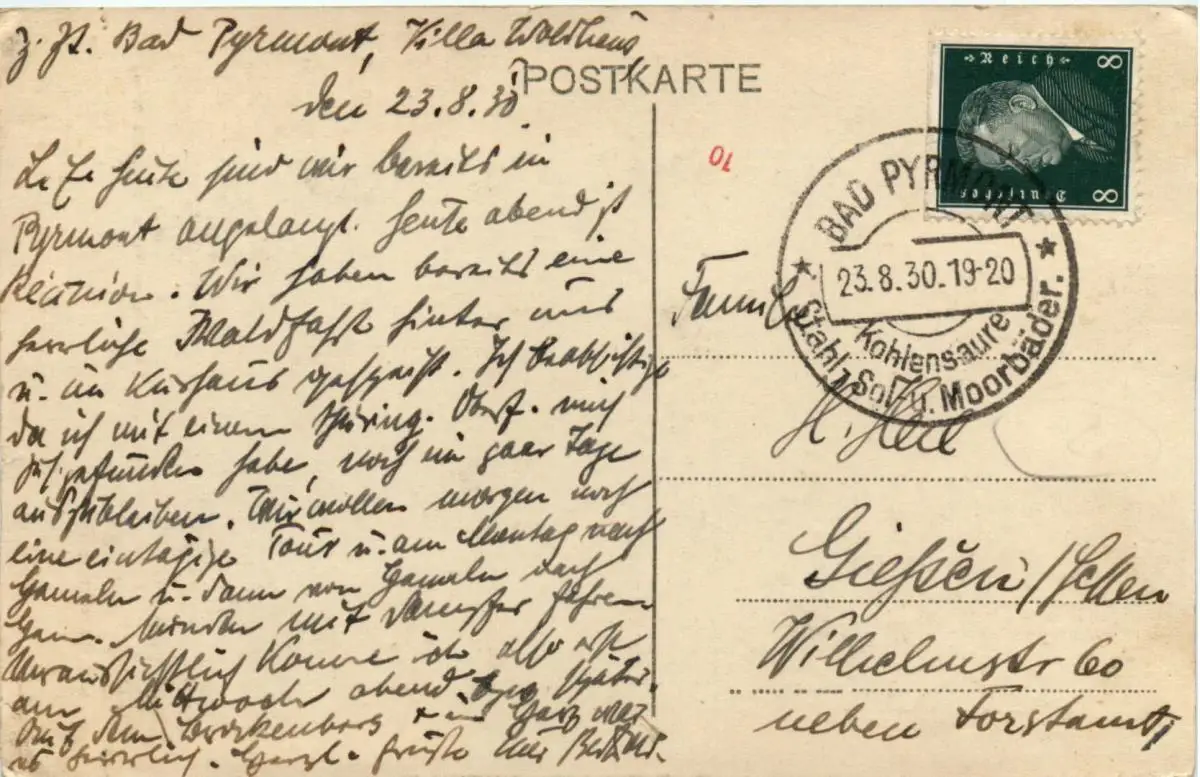 z. Zt. Bad Pyrmont, Villa Waldhaus
den 23.8.30
POSTKARTE
L. E. Heute sind wir bereits in
Pyrmont angelangt. Heute abend ist
Réunion. Wir haben bereits eine
herrliche Waldfahrt hinter uns
u. im Kurhaus gespeist. Ich beabsichtige
da ich mit einem Thüring. Oberf. mich
gefunden habe, noch ein paar Tage
auszubleiben. Wir wollen morgen noch
eine eintägige Tour u. am Montag nach
Hameln u. dann von Hameln nach
Hann. Münden mit Dampfer fahren
Voraussichtlich komme ich also erst
am Mittwoch abend später.
Auf dem Brockenberg im Harz war
es herrlich. Herzl. Grüße Euer
Reich
8
Deutsches
8
10
BAD PYRMONT
23.8.30.19-20
Kohlensaure
Stahl= Sol= u. Moorbäder.
Familie
H. Heil
Gießen/Hessen
Wilhelmstr 60
neben Forstamt